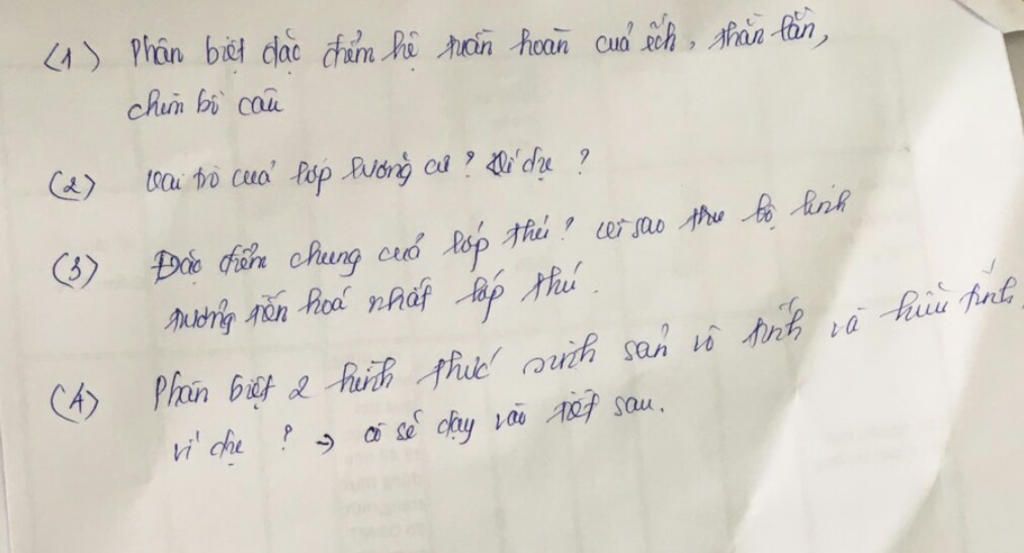 (1) Phân biệt đặc điểm hệ tuần hoàn của ếch, thằn lằn,
chim bồ câu
(2) Vai trò của lớp lưỡng cư ? Ví dụ ?
(3) Đặc điểm chung của lớp thú ? vì sao thú bộ linh
trưởng tiến hoá nhất lớp thú.
(4) Phân biệt 2 hình thức sinh sản vô tính và hữu tính
ví dụ ? → cô sẽ dạy vào tiết sau.